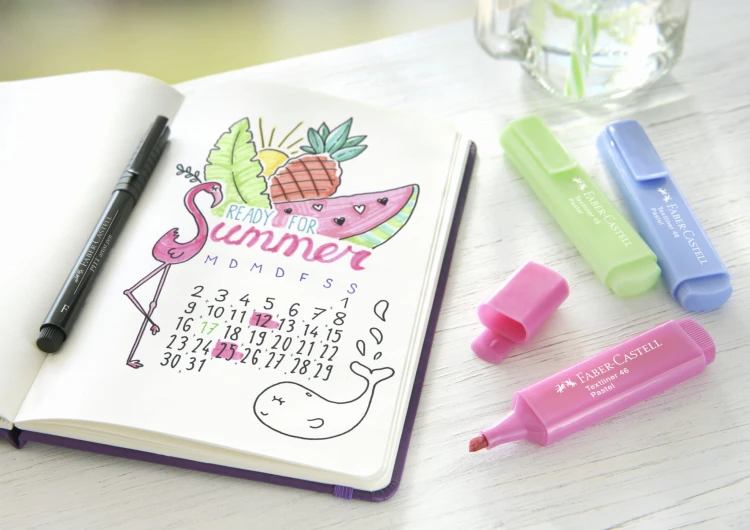 READY FOR
Summer
M D M D F S S
1
2 3 4 5 6 7 8
9 10 11 12 13 14 15
16 17 18 19 20 21 22
23 24 25 26 27 28 29
30 31
FABER-CASTELL
PITT artist pen
F
FABER-CASTELL
Textliner 46
Pastel
FABER-CASTELL
Textliner 46
Pastel
FABER-CASTELL
Textliner 46
Pastel